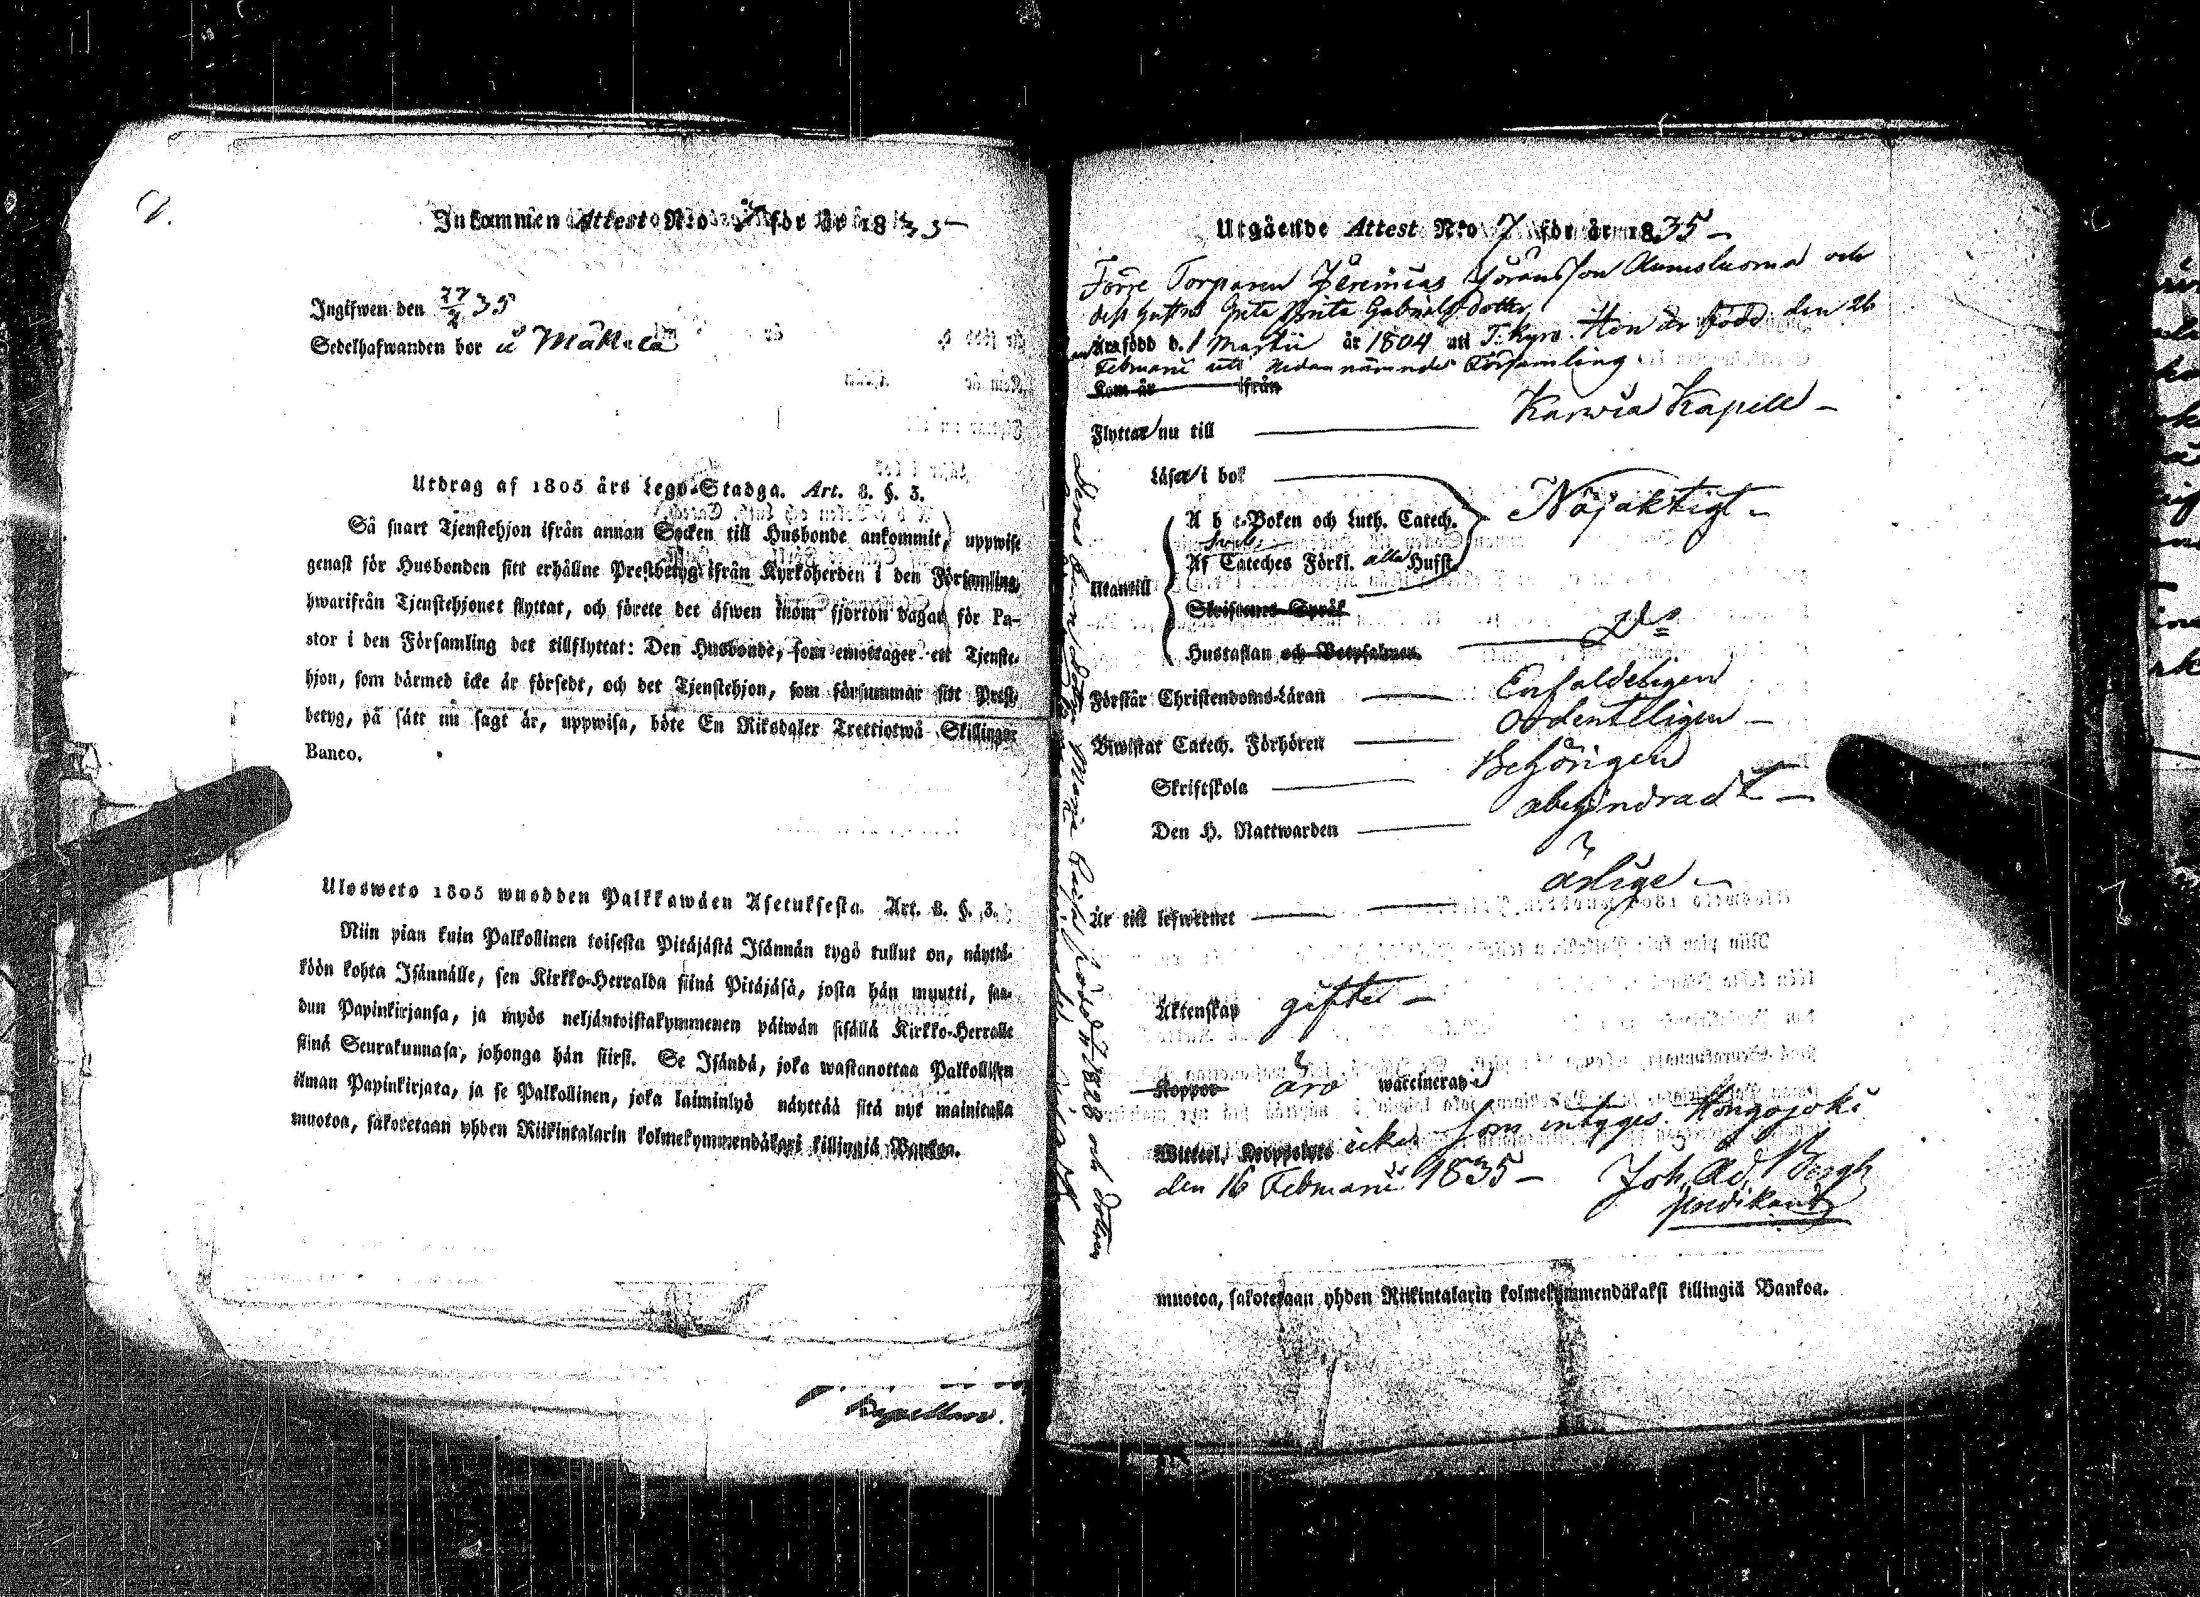 Inkommen Attest N:o för år 1835
Ingifwen den 27/2 35
Sedelhafwanden bor å Mäkelä
Utdrag af 1805 års Lego-Stadga. Art. 8. §. 3.
Så snart Tjenstehjon ifrån annan Socken till Husbonde ankommit, uppwise
genast för Husbonden sitt erhållne Prestbetyg ifrån Kyrkoherden i den Församling,
hwarifrån Tjenstehjonet flyttat, och förete det äfwen inom fjorton dagar för Pa-
stor i den Församling det tillflyttat: Den Husbonde, som emottager ett Tjenste-
hjon, som därmed icke är försedt, och det Tjenstehjon, som försummar sitt Prest-
betyg, på sätt nu sagt är, uppwisa, böte En Riksdaler Trettiotwå Skillingar
Banco.
Ulosweto 1805 wuodden Palkkawäen Asetuksesta. Art. 8. §. 3.
Niin pian kuin Palkollinen toisesta Pitäjästä Isännän tygö tullut on, näyttä-
köön kohta Isännälle, sen Kirkko-Herralda siinä Pitäjäsä, josta hän muutti, saa-
dun Papinkirjansa, ja myös neljäntoistakymmenen päiwän sisällä Kirkko-Herralle
siinä Seurakunnasa, johonga hän siirsi. Se Isändä, joka wastanottaa Palkollisen
ilman Papinkirjata, ja se Palkollinen, joka laiminlyö näyttää sitä nyt mainitusta
muotoa, sakotetaan yhden Riikintalarin kolmekymmendäkaxi killingiä Bankoa.
Kapellan.
Utgående Attest N:o 7 för år 1835
Förre Torparen Jeremias Göransson och
dess hustru Greta Brita Gabrielsdotter
Äro född d. 1 Martii år 1804 uti T:kyro. Hon är född den 26
Februarii uti nedannämnde Församling
Kom år ifrån
Flyttar nu till Karvia Kapell
Läser i bok
A b c-Boken och Luth. Catech. Nöjaktigt
Af Cateches Förkl. alla Hufst.
Utantill
Skriftenes Språk
Hustaflan och Botpsalmen. D:o
Förstår Christendoms-Läran Enfaldeligen
Biwistat Catech. Förhören ordentligen
Skriftskola Behörigen
Den H. Nattwarden obehindradt
Är till lefwernet ärlige
Äktenskap gifte
Koppor äro waccinerade
Wittert, Kroppslyte icke som intygas. Hongojoki
den 16 Februarii 1835 Joh. Ad. Bergh
predikant
Deras barn Dottren Maria född 1828 och Dottren
muotoa, sakotetaan yhden Riikintalarin kolmekymmendäkaksi killingiä Bankoa.